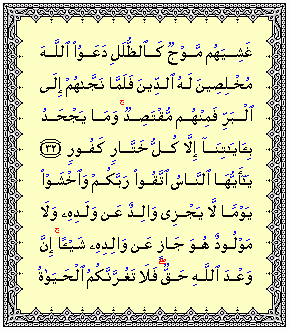 غَشِيَهُم مَّوْجٌ كَٱلظُّلَلِ دَعَوُا۟ ٱللَّهَ
مُخْلِصِينَ لَهُ ٱلدِّينَ فَلَمَّا نَجَّىٰهُمْ إِلَى
ٱلْبَرِّ فَمِنْهُم مُّقْتَصِدٌ ۚ وَمَا يَجْحَدُ
بِـَٔايَـٰتِنَآ إِلَّا كُلُّ خَتَّارٍ كَفُورٍ ﴿٣٢﴾
يَـٰٓأَيُّهَا ٱلنَّاسُ ٱتَّقُوا۟ رَبَّكُمْ وَٱخْشَوْا۟
يَوْمًا لَّا يَجْزِى وَالِدٌ عَن وَلَدِهِۦ وَلَا
مَوْلُودٌ هُوَ جَازٍ عَن وَالِدِهِۦ شَيْـًٔا ۚ إِنَّ
وَعْدَ ٱللَّهِ حَقٌّ ۖ فَلَا تَغُرَّنَّكُمُ ٱلْحَيَوٰةُ